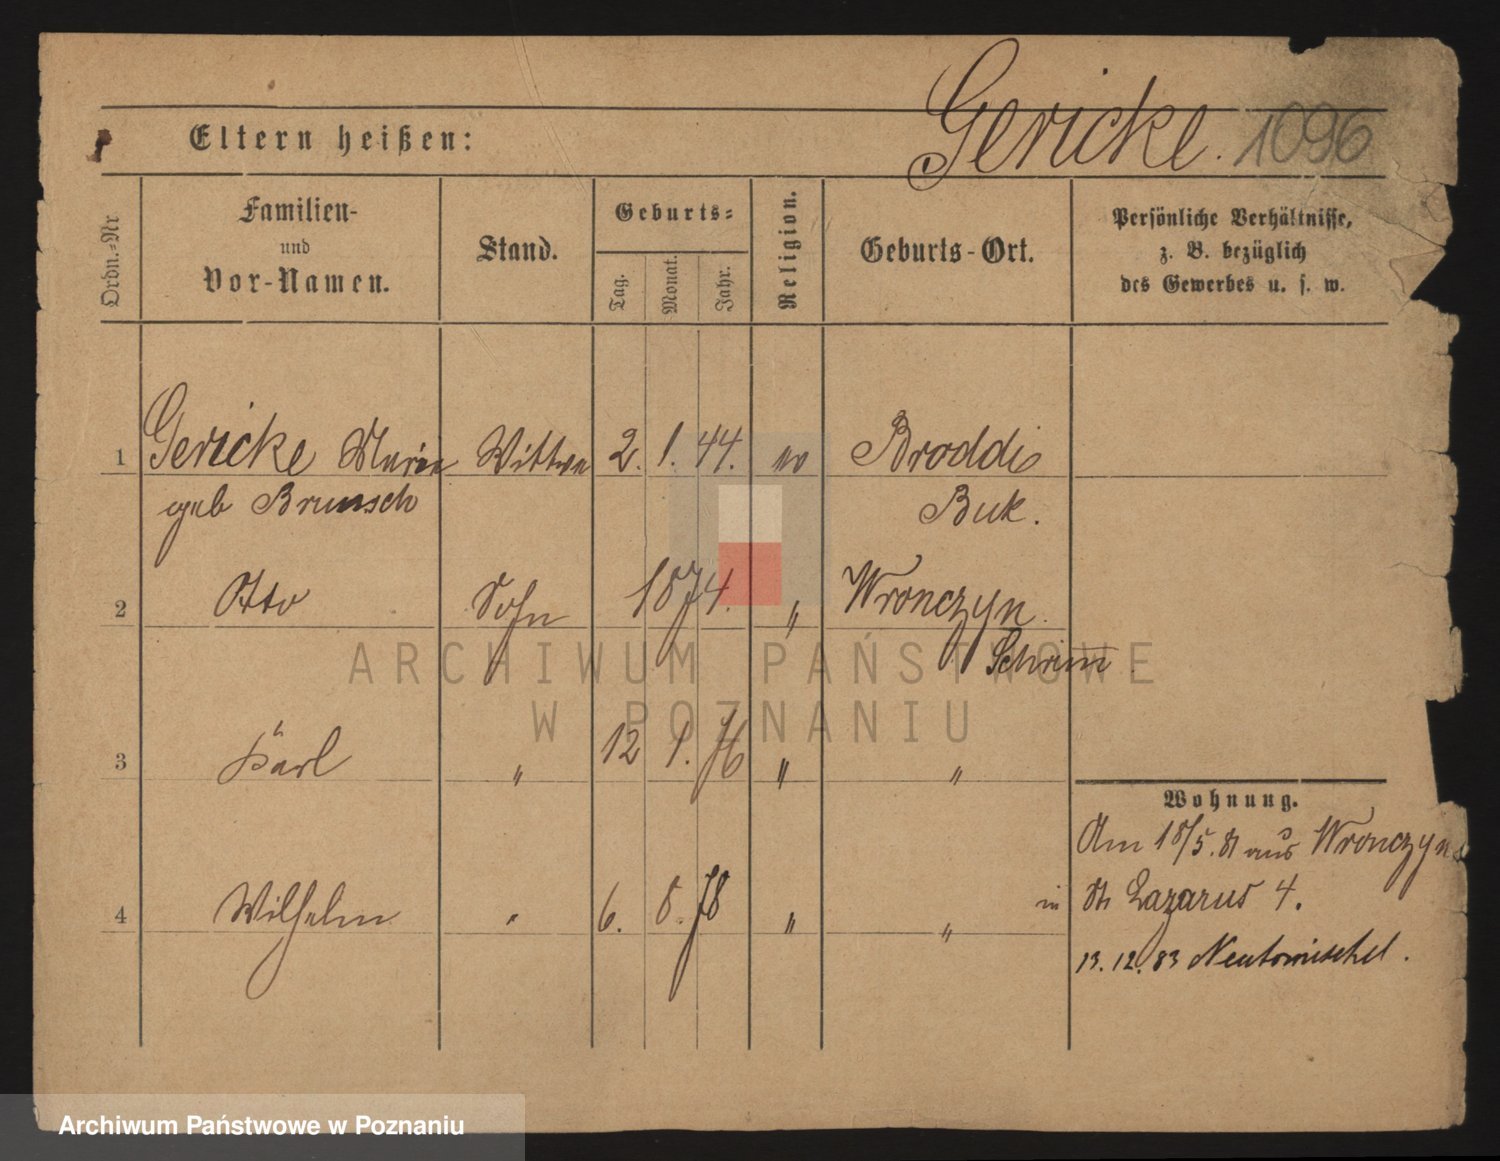 Gericke. 1096
Eltern heißen:
Ordn.-Nr
Familien-
und
Vor-Namen.
Stand.
Geburts-
Tag.
Monat.
Jahr.
Religion.
Geburts-Ort.
Persönliche Verhältnisse,
z. B. bezüglich
des Gewerbes u. s. w.
1 Gericke Marie Wittwe 2. 1. 44. ev Broddi
geb Brunsch Buk.
2 Otto Sohn 1874. " Wronczyn
Schrim
ARCHIWUM PAŃSTWOWE
W POZNANIU
3 Karl " 12 1. 76 " "
Wohnung.
Am 18/5. 81 aus Wronczyn
4 Wilhelm " 6. 8. 78 " "
in St Lazarus 4.
13. 12. 83 Neutomischel.
Archiwum Państwowe w Poznaniu